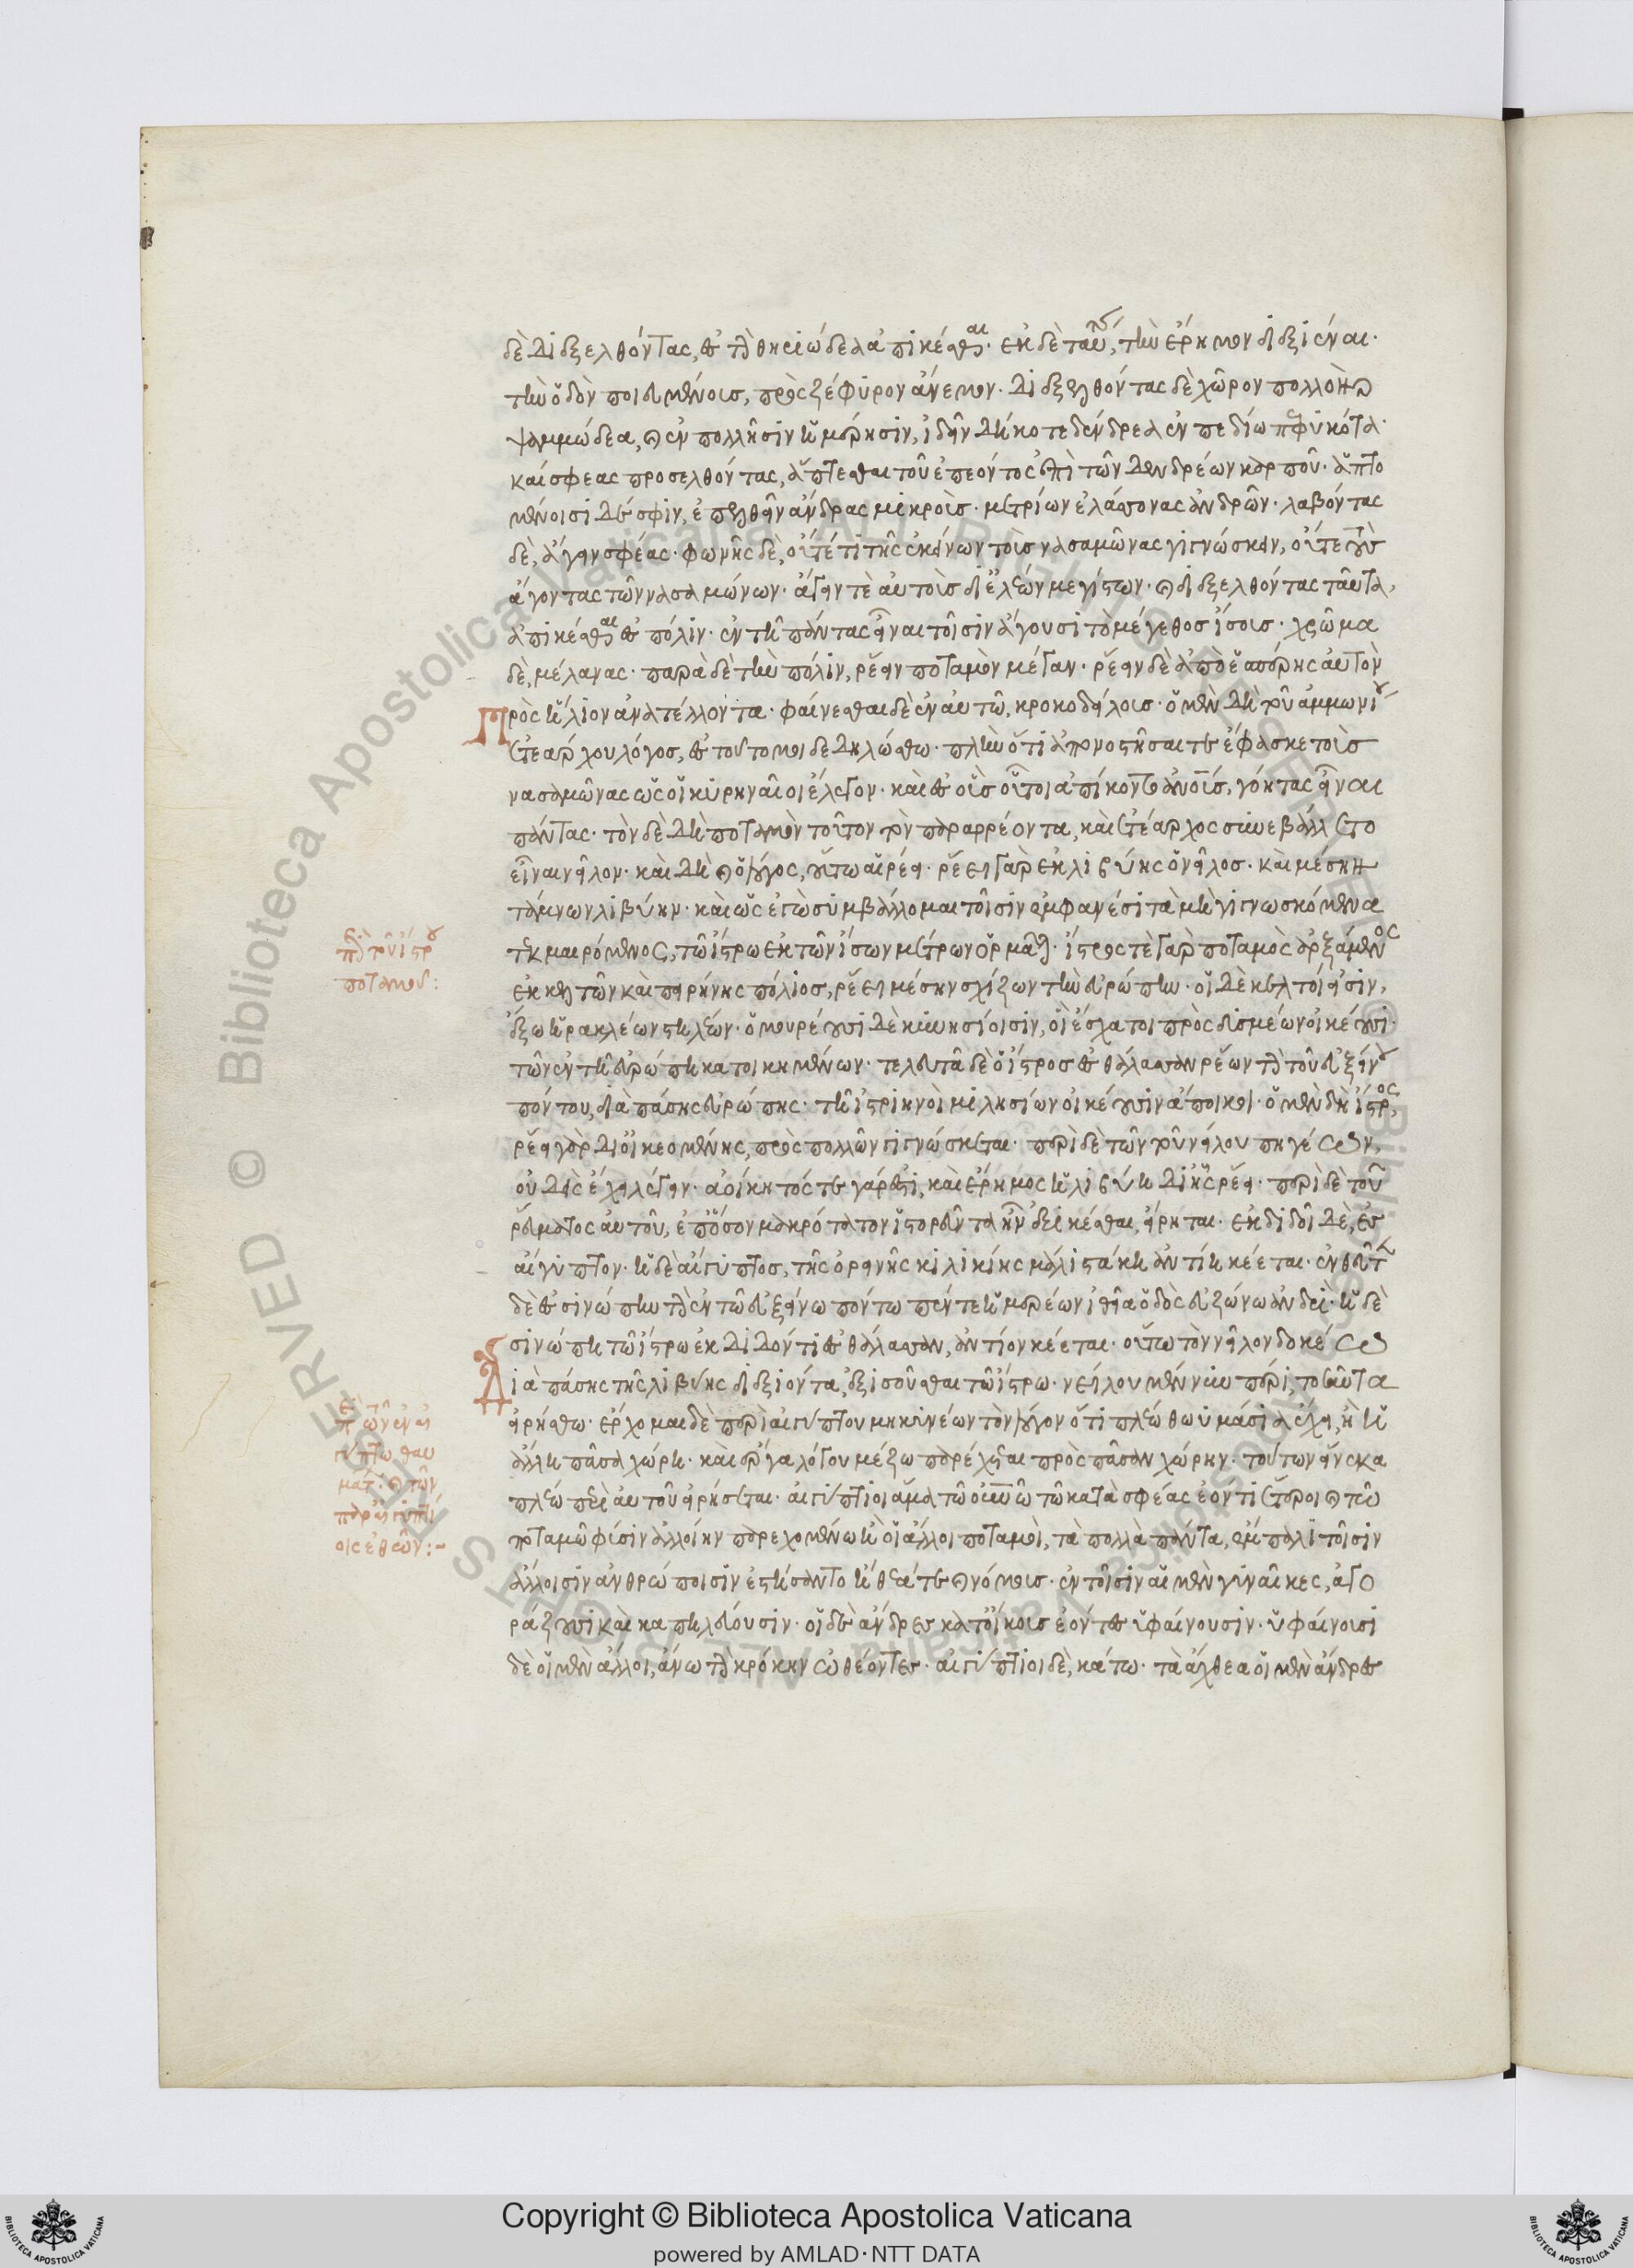 δὲ διεξελθόντας, ἐς τὴν θηριώδεα ἀπικέσθαι. ἐκ δὲ ταύτης, τὴν ἐρῆμον διεξιέναι.
τὴν ὁδὸν ποιευμένοισι, πρὸς ζέφυρον ἄνεμον. διεξελθόντας δὲ χῶρον πολλὸν
ψαμμώδεα, καὶ ἐν πολλῆσιν ἡμέρησιν, ἰδεῖν δή κοτε δένδρεα ἐν πεδίω πεφυκότα.
καί σφεας προσελθόντας, ἅπτεσθαι τοῦ ἐπεόντος ἐπὶ τῶν δενδρέων καρποῦ. ἁπτο
μένοισι δέ σφιν, ἐπελθεῖν ἄνδρας μικρούς. μετρίων ἐλάσσονας ἀνδρῶν. λαβόντας
δὲ, ἄγειν σφέας. φωνῆς δὲ, οὔτέ τι τῆς ἐκείνων τοὺς νασαμῶνας γιγνώσκειν, οὔτε τοὺς
ἄγοντας τῶν νασαμώνων. ἄγειν τὲ αὐτοὺς δι' ἑλέων μεγίστων. καὶ διεξελθόντας ταῦτα,
ἀπικέσθαι ἐς πόλιν. ἐν τῆ πάντας εἶναι τοῖσιν ἄγουσι τὸ μέγεθος ἴσους. χρῶμα
δὲ, μέλανας. παρὰ δὲ τὴν πόλιν, ῥέειν ποταμὸν μέγαν. ῥέειν δὲ ἀπὸ ἑσπέρης αὐτὸν
πρὸς ἥλιον ἀνατέλλοντα. φαίνεσθαι δὲ ἐν αὐτῶ, κροκοδείλους. ὁ μὲν δὴ τοῦ ἀμμωνίου
ἐτεάρχου λόγος, ἐς τοῦτο μοι δεδηλώσθω. πλὴν ὅτι ἀπονοστῆσαι τε ἔφασκε τοὺς
νασαμῶνας ὡς οἱ κυρηναῖοι ἔλεγον. καὶ ἐς οὓς οὗτοι ἀπίκοντο ἀνθρώπους, γόητας εἶναι
πάντας. τὸν δὲ δὴ ποταμὸν τοῦτον τὸν παραρρέοντα, καὶ ἐτέαρχος συνεβάλλετο
εἶναι νεῖλον. καὶ δὴ καὶ ὁ λόγος, οὕτω αἱρέει. ῥέει γὰρ ἐκ λιβύης ὁ νεῖλος. καὶ μέσην
τάμνων λιβύην. καὶ ὡς ἐγὼ συμβάλλομαι τοῖσιν ἐμφανέσι τὰ μὴ γιγνωσκόμενα
τεκμαιρόμενος, τῶ ἴστρω ἐκ τῶν ἴσων μέτρων ὁρμᾶται. ἴστρος τὲ γὰρ ποταμὸς ἀρξάμενος
ἐκ κελτῶν καὶ πυρήνης πόλιος, ῥέει μέσην σχίζων τὴν εὐρώπην. οἱ δὲ κελτοί εἰσιν,
ἔξω ἡρακλέων στηλέων. ὁμουρέουσι δὲ κυνησίοισιν, οἳ ἔσχατοι πρὸς δυσμέων οἰκέουσι.
τῶν ἐν τῆ εὐρώπη κατοικημένων. τελευτᾶ δὲ ὁ ἴστρος ἐς θάλασσαν ῥέων τὴν τοῦ εὐξείνου
πόντου, διὰ πάσης εὐρώπης. τῆ ἰστριηνοὶ μιλησίων οἰκέουσιν ἄποικοι. ὁ μὲν δὴ ἴστρος,
ῥέει γὰρ δι' οἰκεομένης, πρὸς πολλῶν γιγνώσκεται. περὶ δὲ τῶν τοῦ νείλου πηγέων,
οὐδεὶς ἔχει λέγειν. ἀοίκητός τε γάρ ἐστι, καὶ ἔρημος ἡ λιβύη δι' ἧς ῥέει. περὶ δὲ τοῦ
ῥεύματος αὐτοῦ, ἐπ' ὅσον μακρότατον ἱστορεῦντα ἦν ἐξικέσθαι, εἴρηται. ἐκδιδοῖ δὲ, ἐς
αἴγυπτον. ἡ δὲ αἴγυπτος, τῆς ὀρεινῆς κιλικίης μάλιστά κη ἀντίη κέεται. ἐνθεῦτεν
δὲ ἐς σινώπην τὴν ἐν τῶ εὐξείνω πόντω πέντε ἡμερέων ἰθεῖα ὁδὸς εὐζώνω ἀνδρί. ἡ δὲ
σινώπη τῶ ἴστρω ἐκδιδόντι ἐς θάλασσαν, ἀντίον κέεται. οὕτω τὸν νεῖλον δοκέω
Διὰ πάσης τῆς λιβύης διεξιόντα, ἐξισοῦσθαι τῶ ἴστρω. νείλου μέν νυν πέρι, τοσαῦτα
εἰρήσθω. ἔρχομαι δὲ περὶ αἰγύπτου μηκυνέων τὸν λόγον ὅτι πλέω θωυμάσια ἔχει, ἢ ἡ
ἄλλη πᾶσα χώρη. καὶ ἔργα λόγου μέζω παρέχεται πρὸς πᾶσαν χώρην. τούτων εἵνεκα
πλέω περὶ αὐτοῦ εἰρήσεται. αἰγύπτιοι ἅμα τῶ οὐρανῶ τῶ κατὰ σφέας ἐόντι ἑτέροι καὶ τῶ
ποταμῶ φύσιν ἀλλοίην παρεχομένω ἢ οἱ ἄλλοι ποταμοὶ, τὰ πολλὰ πάντα, ἔμπαλι τοῖσιν
ἄλλοισιν ἀνθρώποισιν ἐστήσαντο ἤθεά τε καὶ νόμους. ἐν τοῖσιν αἱ μὲν γυναῖκες, ἀγο
ράζουσι καὶ καπηλεύουσιν. οἱ δὲ ἄνδρες κατ' οἴκους ἐόντες ὑφαίνουσιν. ὑφαίνουσι
δὲ οἱ μὲν ἄλλοι, ἄνω τὴν κρόκην ὠθέοντες. αἰγύπτιοι δὲ, κάτω. τὰ ἄχθεα οἱ μὲν ἄνδρες
περὶ τοῦ ἴστρου
ποταμοῦ:
περὶ τῶν ἐν αἰ
γύπτω θαυ
μάτων καὶ τῶν
παρ' αἰγυπτί
οις ἐθῶν:-
Copyright © Biblioteca Apostolica Vaticana
powered by AMLAD·NTT DATA